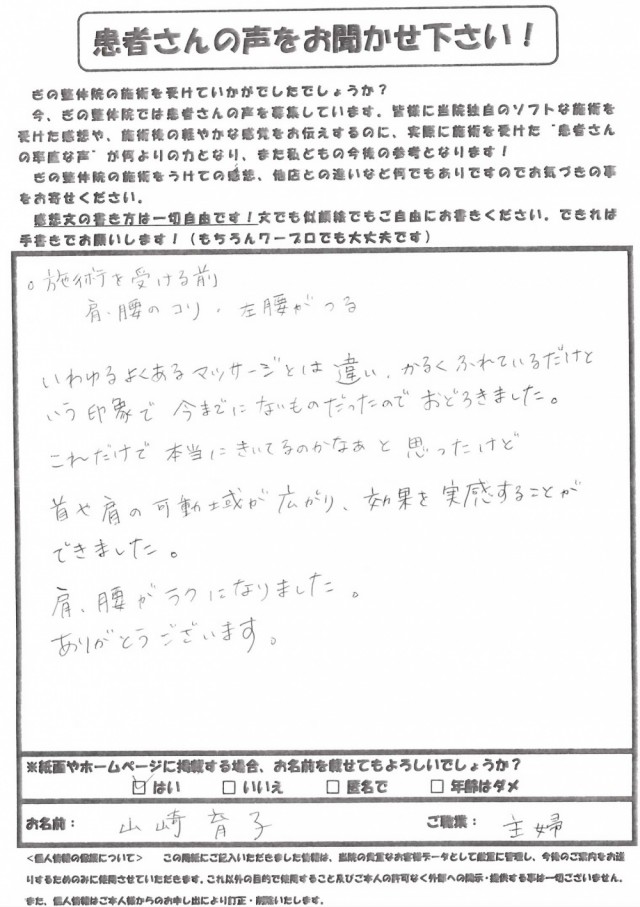 患者さんの声をお聞かせ下さい！
ぎの整体院の施術を受けていかがでしたでしょうか？
今、ぎの整体院では患者さんの声を募集しています。皆様に当院独自のソフトな施術を
受けた感想や、施術後の軽やかな感覚をお伝えするのに、実際に施術を受けた“患者さん
の率直な声”が何よりの力となり、また私どもの今後の参考となります！
ぎの整体院の施術をうけての感想、他店との違いなど何でもありですのでお気づきの事
をお寄せください。
感想文の書き方は一切自由です！文でも似顔絵でもご自由にお書きください。できれば
手書きでお願いします！（もちろんワープロでも大丈夫です）
。施術を受ける前
肩・腰のコリ、左腰がつる
いわゆるよくあるマッサージとは違い、かるくふれているだけと
いう印象で今までにないものだったのでおどろきました。
これだけで本当にきいてるのかなぁと思ったけど
首や肩の可動域が広がり、効果を実感することが
できました。
肩、腰がラクになりました。
ありがとうございます。
※紙面やホームページに掲載する場合、お名前を載せてもよろしいでしょうか？
☑はい □いいえ □匿名で □年齢はダメ
お名前： 山崎育子 ご職業： 主婦
<個人情報の保護について> この用紙にご記入いただきました情報は、当院の貴重なお客様データとして厳重に管理し、今後のご案内をお送
りするためのみに使用させていただきます。これ以外の目的で使用すること及びご本人の許可なく外部への開示・提供する事は一切ございません。
また、個人情報はご本人様からのお申し出により訂正・削除いたします。